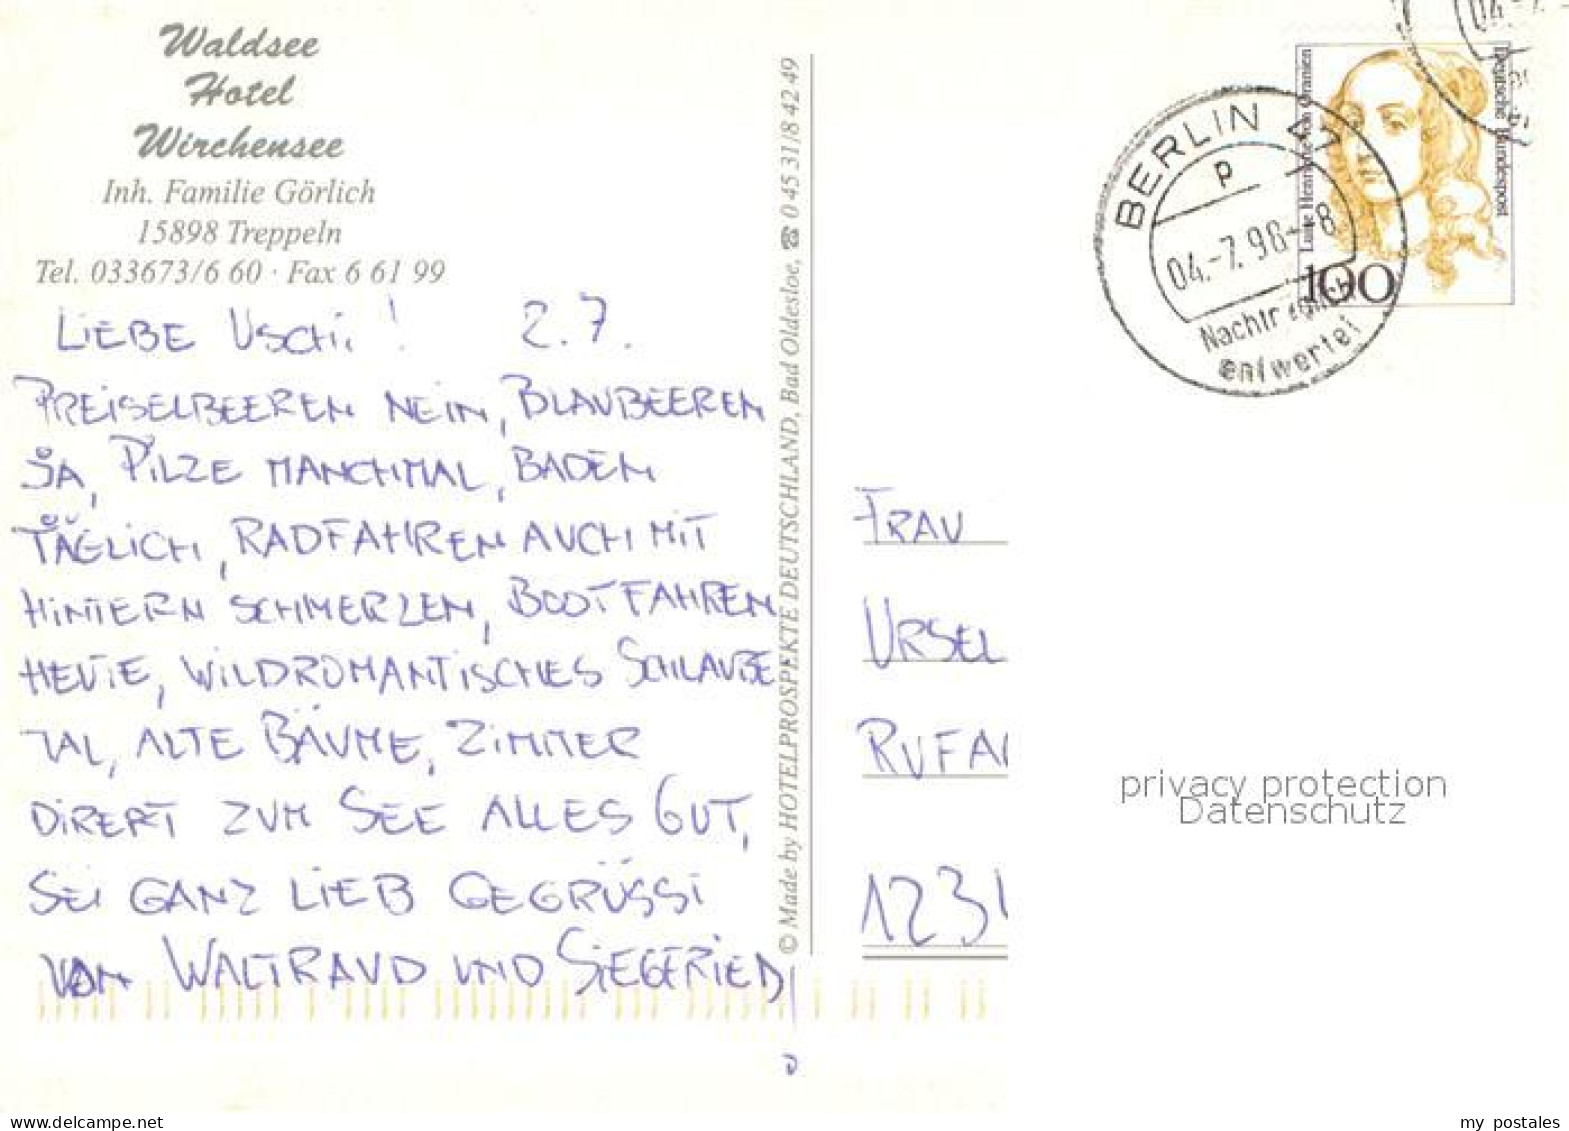 Waldsee
Hotel
Wirchensee
Inh. Familie Görlich
15898 Treppeln
Tel. 033673/6 60 · Fax 6 61 99
LIEBE USCHI! 2.7.
PREISELBEEREN NEIN, BLAUBEEREN
JA, PILZE MANCHMAL, BADEN
TÄGLICH, RADFAHREN AUCH MIT
HINTERN SCHMERZEN, BOOTFAHREN
HEUTE, WILDROMANTISCHES SCHLAUBE
TAL, ALTE BÄUME, ZIMMER
DIREKT ZUM SEE ALLES GUT,
SEI GANZ LIEB GEGRÜSST
VON WALTRAUD UND SIEGFRIED
© Made by HOTELPROSPEKTE DEUTSCHLAND, Bad Oldesloe, ☎ 0 45 31/8 42 49
BERLIN
P
04.-7.98-8
Nachträglich
entwertet
Luise Henriette von Oranien
Deutsche Bundespost
100
FRAU
URSEL
RUFA
123
privacy protection
Datenschutz
delcampe.net
my_postales